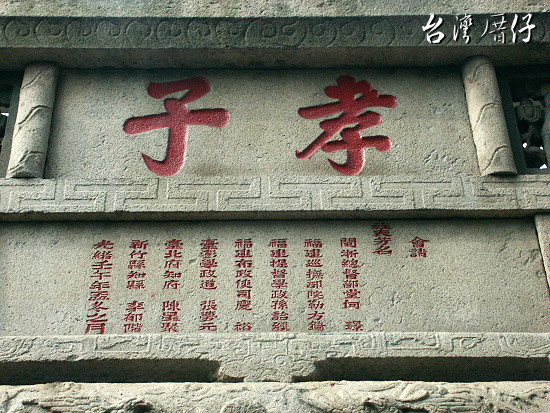 台灣厝仔
孝子
會請
芳名
閩浙總督部堂何 璟
福建巡撫部院勒方錡
福建提督學政孫詒經
福建布政使司慶 裕
臺澎學政道 張夢元
臺北府知府 陳星聚
新竹縣知縣 李郁階
光緒年孟冬之月